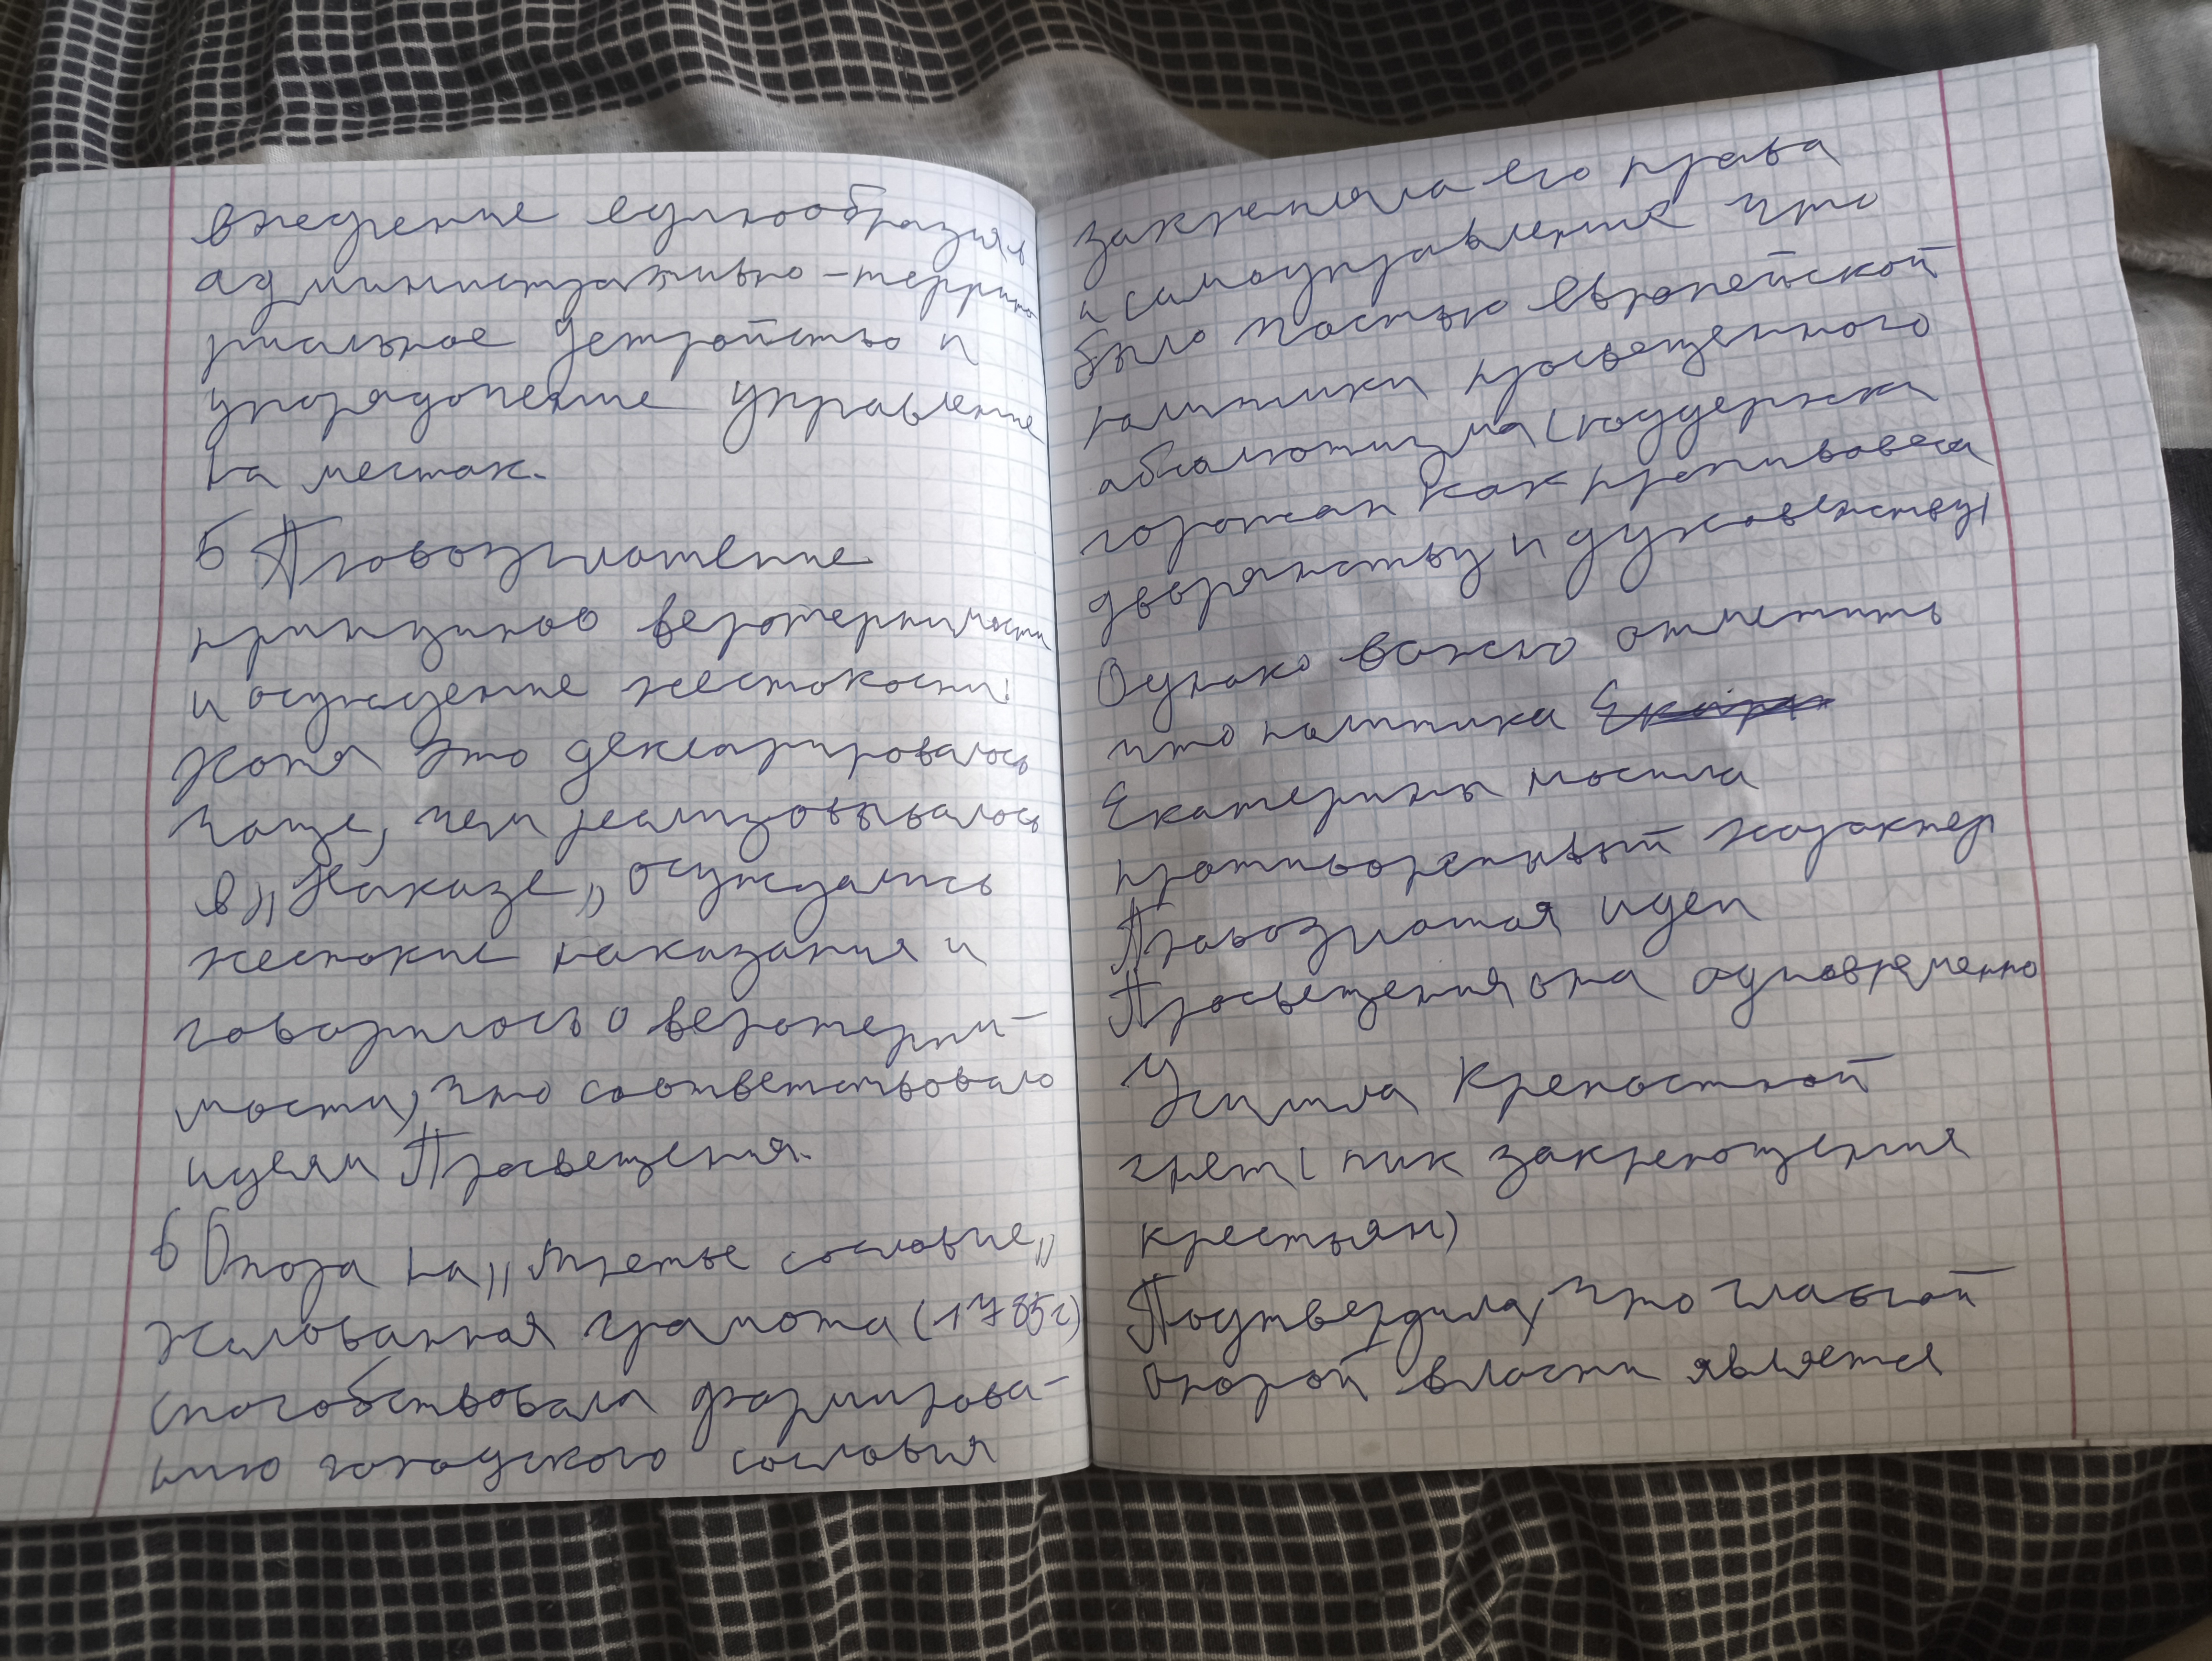 внедрение единообразия в
административно-террито
риальное устройство и
упорядочение управление
на местах.
5 Провозглашение
принципов веротерпимости
и осуждение жестокости:
Хотя это декларировалось
чаще, чем реализовывалось
в „Наказе„ осуждались
жестокие наказания и
говорилось о веротерпи-
мости, что соответствовало
идеям Просвещения.
6 Опора на „третье сословие„
Жалованная грамота (1785г)
способствовала формирова-
нию городского сословия
закрепляла его права
и самоуправление что
было частью европейской
политики просвещенного
абсолютизма (поддержка
горожан как противовеса
дворянству и духовенству)
Однако важно отметить
что политика
Екатерины носила
противоречивый характер
Провозглашая идеи
Просвещения она одновременно
Усилила крепостной
гнет (пик закрепощения
крестьян)
Подтвердила, что главной
опорой власти является